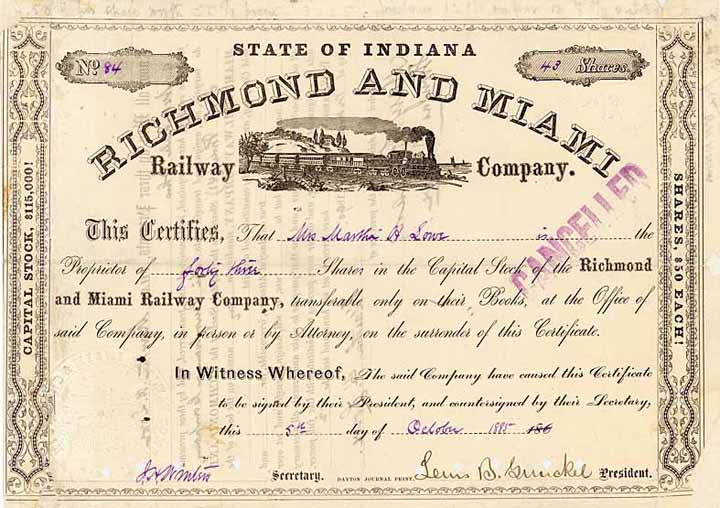 STATE OF INDIANA
No. 84
43 Shares.
RICHMOND AND MIAMI
Railway Company.
CANCELLED
This Certifies, That Mrs Martha H Lowe is the
Proprietor of forty three Shares in the Capital Stock of the Richmond
and Miami Railway Company, transferable only on their Books, at the Office of
said Company, in person or by Attorney, on the surrender of this Certificate.
In Witness Whereof, The said Company have caused this Certificate
to be signed by their President, and countersigned by their Secretary,
this 5th day of October 1885 186
Secretary. DAYTON JOURNAL PRINT. Lewis B. Gunckel President.
CAPITAL STOCK, $115,000!
SHARES, $50 EACH!